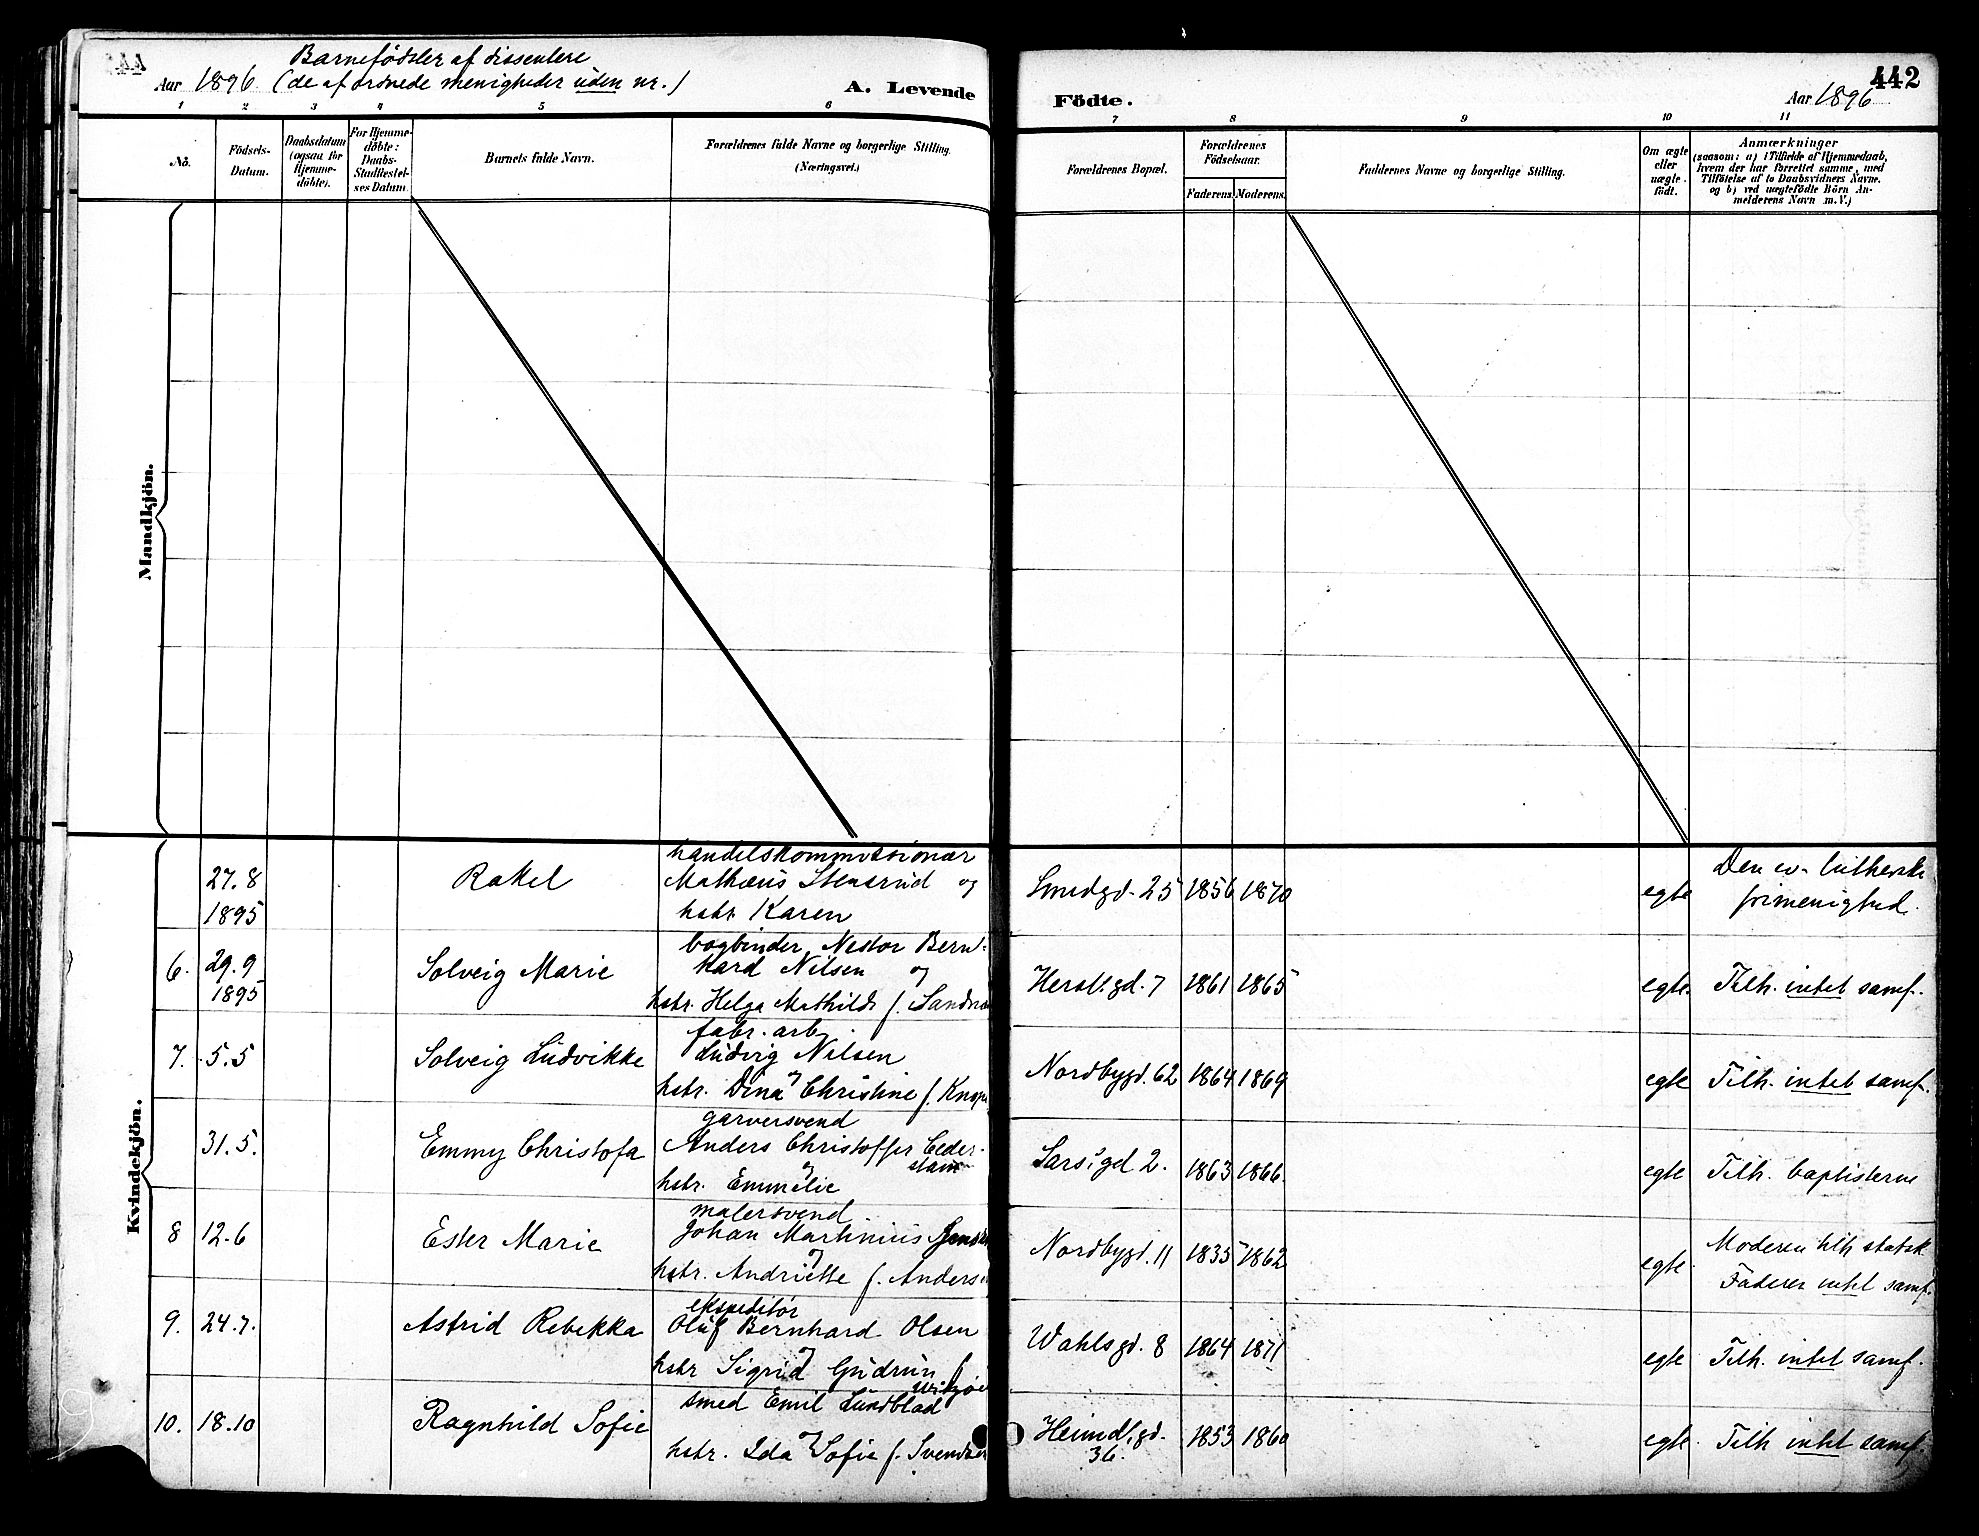 Barnefödsler af dissentere
Aar 1896. (de af ordnede menigheder uden nr.)
A. Levende
Födte.
Aar 1896
442
1 2 3 4 5 6
7 8 9 10 11
No.
Födsels-
Datum.
Daabsdatum
(ogsaa for
Hjemme-
döbte).
For Hjemme-
döbte:
Daabs-
Stadfestel-
ses Datum.
Barnets fulde Navn.
Forældrenes fulde Navne og borgerlige Stilling.
(Næringsvei.)
Forældrenes Bopæl.
Forældrenes
Födselsaar.
Faderens. Moderens.
Faddernes Navne og borgerlige Stilling.
Om ægte
eller
uægte
födt.
Anmærkninger
(saasom: a) i Tilfælde af Hjemmedaab,
hvem der har forrettet samme, med
Tilföielse af to Daabsvidners Navne.
og b) ved uægtefödte Börn An-
melderens Navn m.V.)
Mandkjön.
Kvindekjön.
27.8
1895
Rakel
handelskommissionær
Mathæus Stensrud og
hstr. Karen
Smedgd. 25 1856 1870
egte
Den ev. lutherske
frimenighed.
6. 29.9
1895
Solveig Marie
bogbinder Nestor Bern-
hard Nilsen og
hstr. Helga Mathilde f.
7 1861 1865
egte.
Tilh. intet samf.
7. 5.5
Solveig Ludvikke
fabr. arb.
Ludvig Nilsen
og
hstr. Dina Christine f.
Nordbygd. 62 1864 1869
egte
Tilh. intet samf.
31.5.
Emmy Christofa
garversvend
Anders Christoffer Ceder-
stam
og
hstr. Emmelie
Sarsigd 2. 1863 1866.
egte
Tilh. baptisterne
8 12.6
Ester Marie
malersvend
Johan Martinius
og
hstr. Andriette f.
Nordbygd. 11 1835 1862
egte.
Moderen tilh statsk
Faderen intet samf.
9. 24.7.
Astrid Rebekka
ekspeditør
Oluf Bernhard Olsen
og
hstr Sigrid Gudrun f.
Wahlsgd. 8 1864 1871
egte
Tilh. intet samf.
10. 18.10
Ragnhild Sofie
smed Emil Lundblad
og
hstr. Ida Sofie f. Svendsen
Heimdl.gd.
36.
1853 1860
egte.
Tilh intet samf.